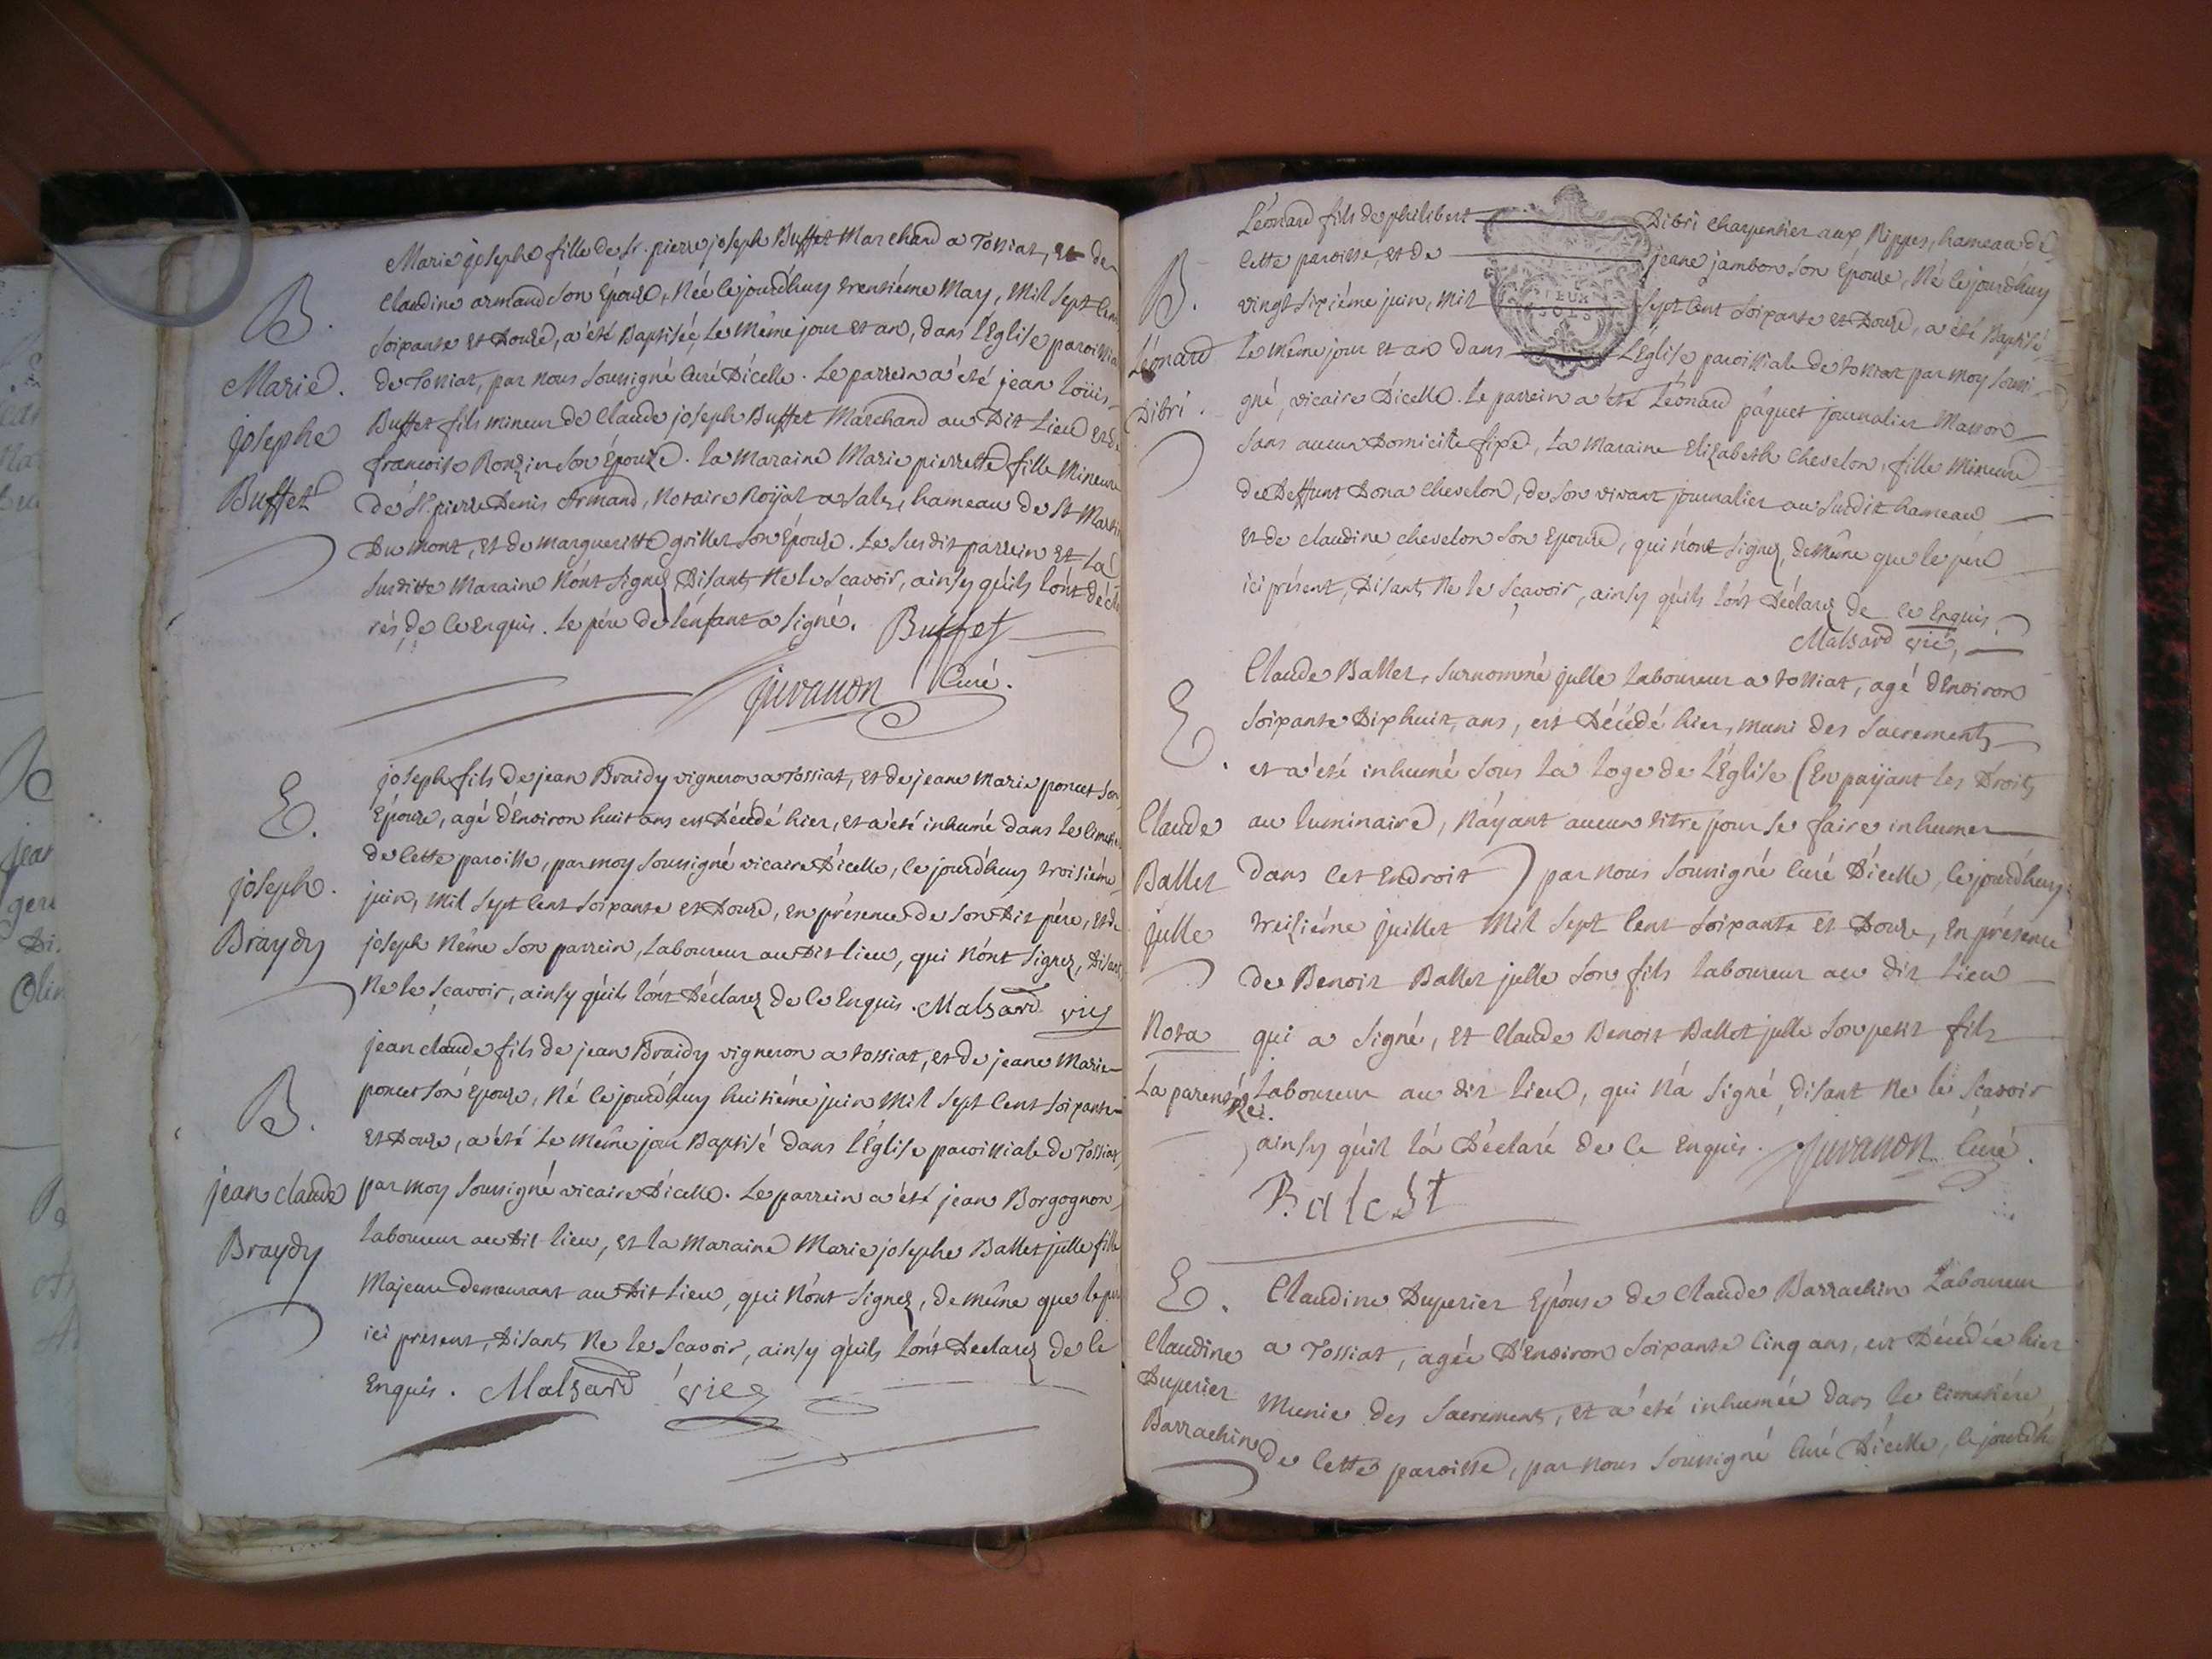 B.
Marie.
josephe
Buffet
Marie josephe fille de Sr. pierre joseph Buffet Marchand a Tossiat, et de
Claudine armand son Épouse, Née cejourd'huy trentiéme May, Mil Sept Cent
Soixante et Douze, a été Baptisée, Le Même jour et an, dans l'Église paroissiale
de Tossiat, par Nous Soussigné Curé D'icelle. Le parrein a été jean Loüis
Buffet fils mineur de Claude joseph Buffet Marchand au Dit Lieu et de
francoise Rouzin son Épouze. La Maraine Marie pierrette fille Mineure
de Sr. pierre Denis Armand, Notaire Roÿal a Salz, hameau de St Martin
Du mont, et de margueritte grillet son Épouse. Le Susdit parrein et la
Susditte Maraine N'ont Signez Disants Ne le Scavoir, ainsy qu'ils l'ont décla
rés de ce enquis. Le pére de l'enfant a Signé. Buffet
juvanon Curé.
E.
joseph.
Braydy
joseph fils de jean Braidy vigneron a Tossiat, et de jeane Marie poncet son
Épouse, agé d'Environ huit ans est Décédé hier, et a été inhumé dans le Cimetiére
de cette paroisse, par moy Soussigné vicaire D'icelle, ce jourd'huy troisiéme
juin, Mil Sept Cent Soixante et Douze, en présence de son Dit pére, et de
joseph Nême son parrein, Laboureur au Dit lieu, qui N'ont Signez, Disants
Ne le Sçavoir, ainsy qu'ils l'ont Déclarez de Ce Enquis. Malsard vic
B.
jean claude
Braydy
jean claude fils de jean Braidy vigneron a tossiat, et de jeane Marie
poncet son Épouse, Né Ce jourd'huy huitiéme juin Mil Sept Cent Soixante
et Douze, a été Le Même jour Baptisé dans l'Église paroissiale de Tossiat
par moy Soussigné vicaire D'icelle. Le parrein a été jean Borgognon,
Laboureur au Dit lieu, et la Maraine Marie josephe Ballet julle fille
Majeure demeurant au Dit Lieu, qui N'ont Signez, de même que le pére
ici present, Disants Ne le Scavoir, ainsy qu'ils l'ont Declarez de Ce
Enquis. Malsard vic
B.
Léonard
Dibri.
Léonard fils de philibert Dibri Charpentier aux Rippes, hameau de
Cette paroisse, et de jeane jambon son Épouse, Né Ce jourd'huy
vingt Sixiéme juin, Mil Sept Cent Soixante et Douze, a été Baptisé
Le Même jour et an dans L'Eglise paroissiale de tossiat par moy soussi
gné, vicaire D'icelle. Le parrein a été Léonard pâquet journalier Masson
Sans aucun Domicile fixe, La Maraine Elizabeth Chevelon, fille Mineure
de Deffunt Dona Chevelon, de Son vivant journalier au Susdit hameau
et de Claudine chevelon son Epouse, qui N'ont Signez, de Même que le pére
ici présent, Disants Ne le Sçavoir, ainsy qu'ils l'ont Déclarez de Ce Enquis
Malsard vic
E.
Claude
Ballet
julle
Nota
La parentése.
Claude Ballet, surnommé julle Laboureur a tossiat, agé d'Environ
Soixante Dixhuit ans, est Décédé hier, muni des Sacrements
et a été inhumé Sous La loge de l'Église (En païjant les Droits
au luminaire, N'aÿant aucun titre pour se faire inhumer
dans Cet Endroit) par Nous Soussigné Curé D'icelle, Ce jourd'huy
treiziéme juillet Mil Sept Cent Soixante et Douze, En présence
de Benoit Ballet julle Son fils laboureur au dit Lieu
qui a Signé, et Claude Benoit Ballet julle Son petit fils
Laboureur au dit Lieu, qui N'a Signé, disant Ne le Scavoir
ainsy qu'il l'a Déclaré de Ce Enquis. juvanon Curé.
Balest
E.
Claudine
Duperier
Barrachin
Claudine Duperier Épouse de Claude Barrachin Laboureur
a Tossiat, agée D'Environ Soixante Cinq ans, est Décédée hier
Munie des Sacrements, et a été inhumée dans le Cimetiére
de Cette paroisse, par Nous Soussigné Curé D'icelle, Ce jourdh